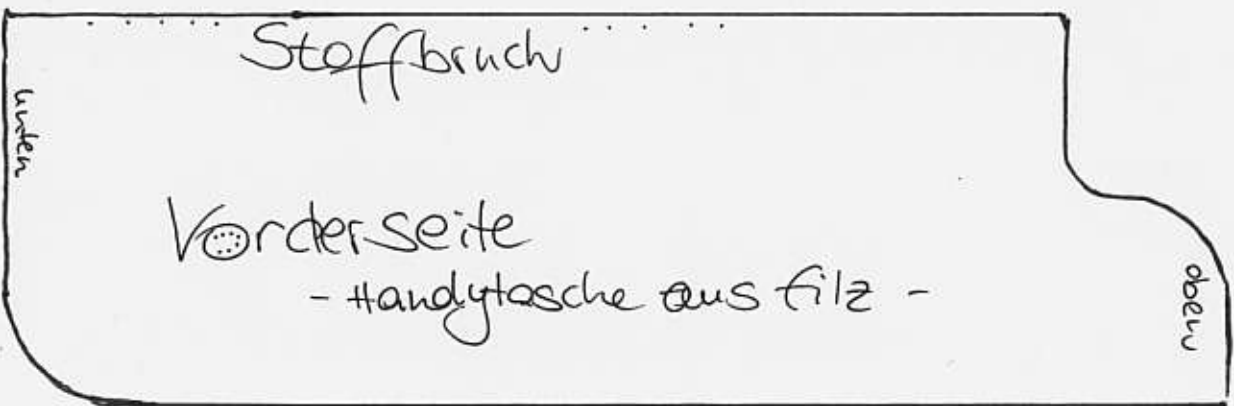 Stoffbruch
unten
Vorderseite
- Handytasche aus Filz -
oben